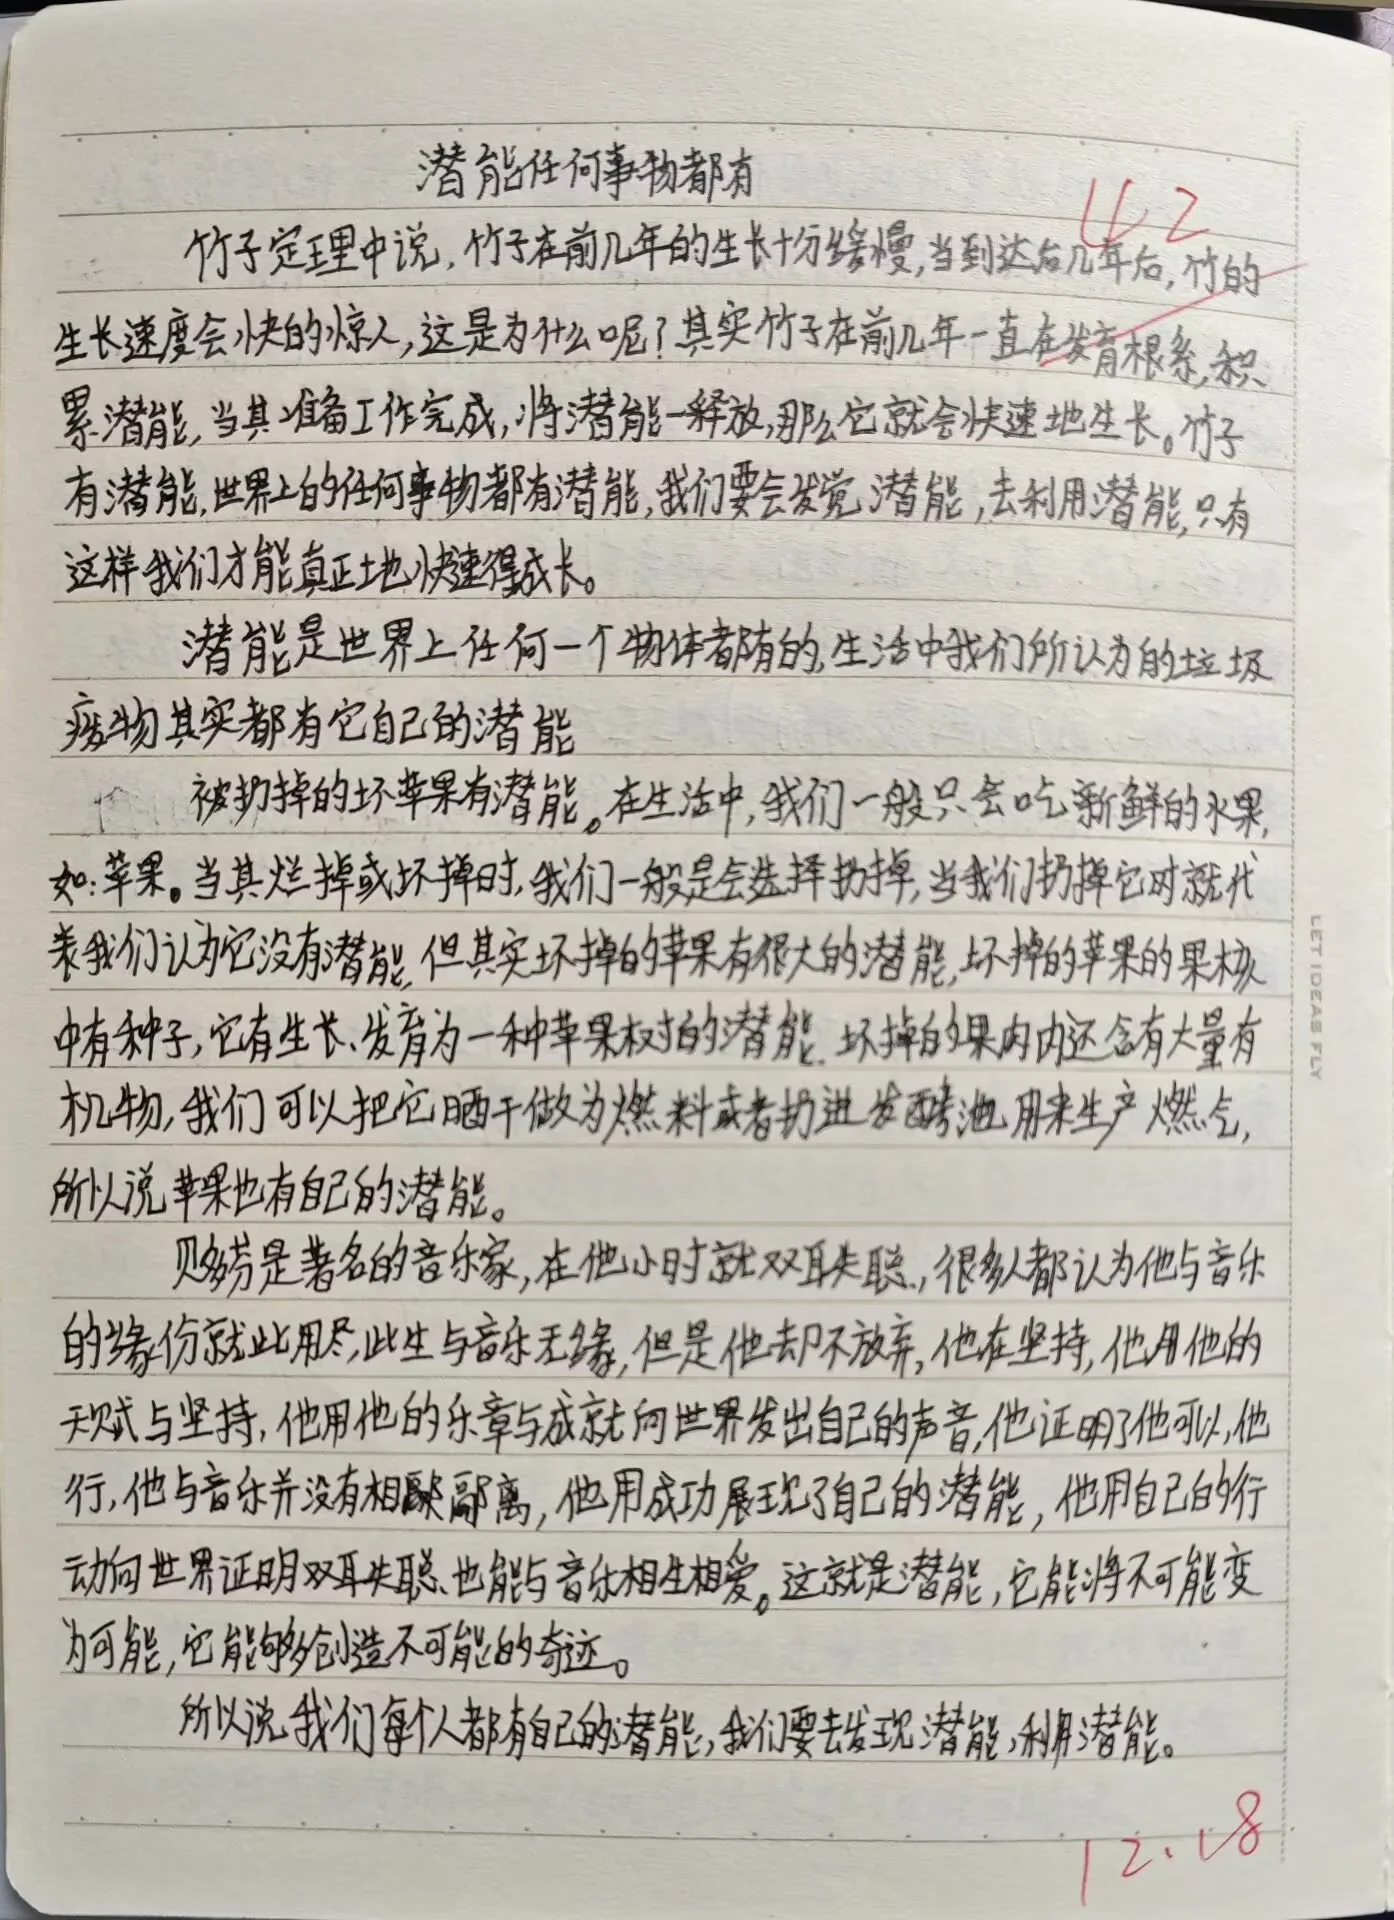 潜能任何事物都有
42
竹子定理中说,竹子在前几年的生长十分缓慢,当到达后几年后,竹的
生长速度会快的惊人,这是为什么呢?其实竹子在前几年一直在发育根系,积
累潜能,当其准备工作完成,将潜能一释放,那么它就会快速地生长。竹子
有潜能,世界上的任何事物都有潜能,我们要会发觉潜能,去利用潜能,只有
这样我们才能真正地快速得成长。
潜能是世界上任何一个物体都有的,生活中我们所认为的垃圾
废物其实都有它自己的潜能
被扔掉的坏苹果有潜能。在生活中,我们一般只会吃新鲜的水果,
如:苹果。当其烂掉或坏掉时,我们一般是会选择扔掉,当我们扔掉它时就代
表我们认为它没有潜能,但其实坏掉的苹果有很大的潜能,坏掉的苹果的果核
中有种子,它有生长、发育为一种苹果树的潜能.坏掉的果肉内还含有大量有
机物,我们可以把它晒干做为燃料或者扔进发酵池,用来生产燃气,
所以说苹果也有自己的潜能。
贝多芬是著名的音乐家,在他小时就双耳失聪,很多人都认为他与音乐
的缘份就此用尽,此生与音乐无缘,但是他却不放弃,他在坚持,他用他的
天赋与坚持,他用他的乐章与成就向世界发出自己的声音,他证明了他可以,他
行,他与音乐并没有相隔离,他用成功展现了自己的潜能,他用自己的行
动向世界证明双耳失聪、也能与音乐相生相爱。这就是潜能,它能将不可能变
为可能,它能够多创造不可能的奇迹。
所以说我们每个人都有自己的潜能,我们要去发现潜能,利用潜能。
12.18
LET IDEAS FLY